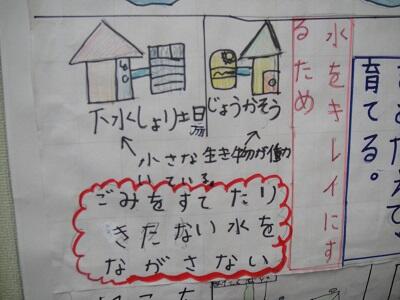 水をキレイにす
るため
育てる。
下水しょり土昜
じょうかそう
小さな生き物が働
いている。
ごみをすてたり
きたない水を
ながさない